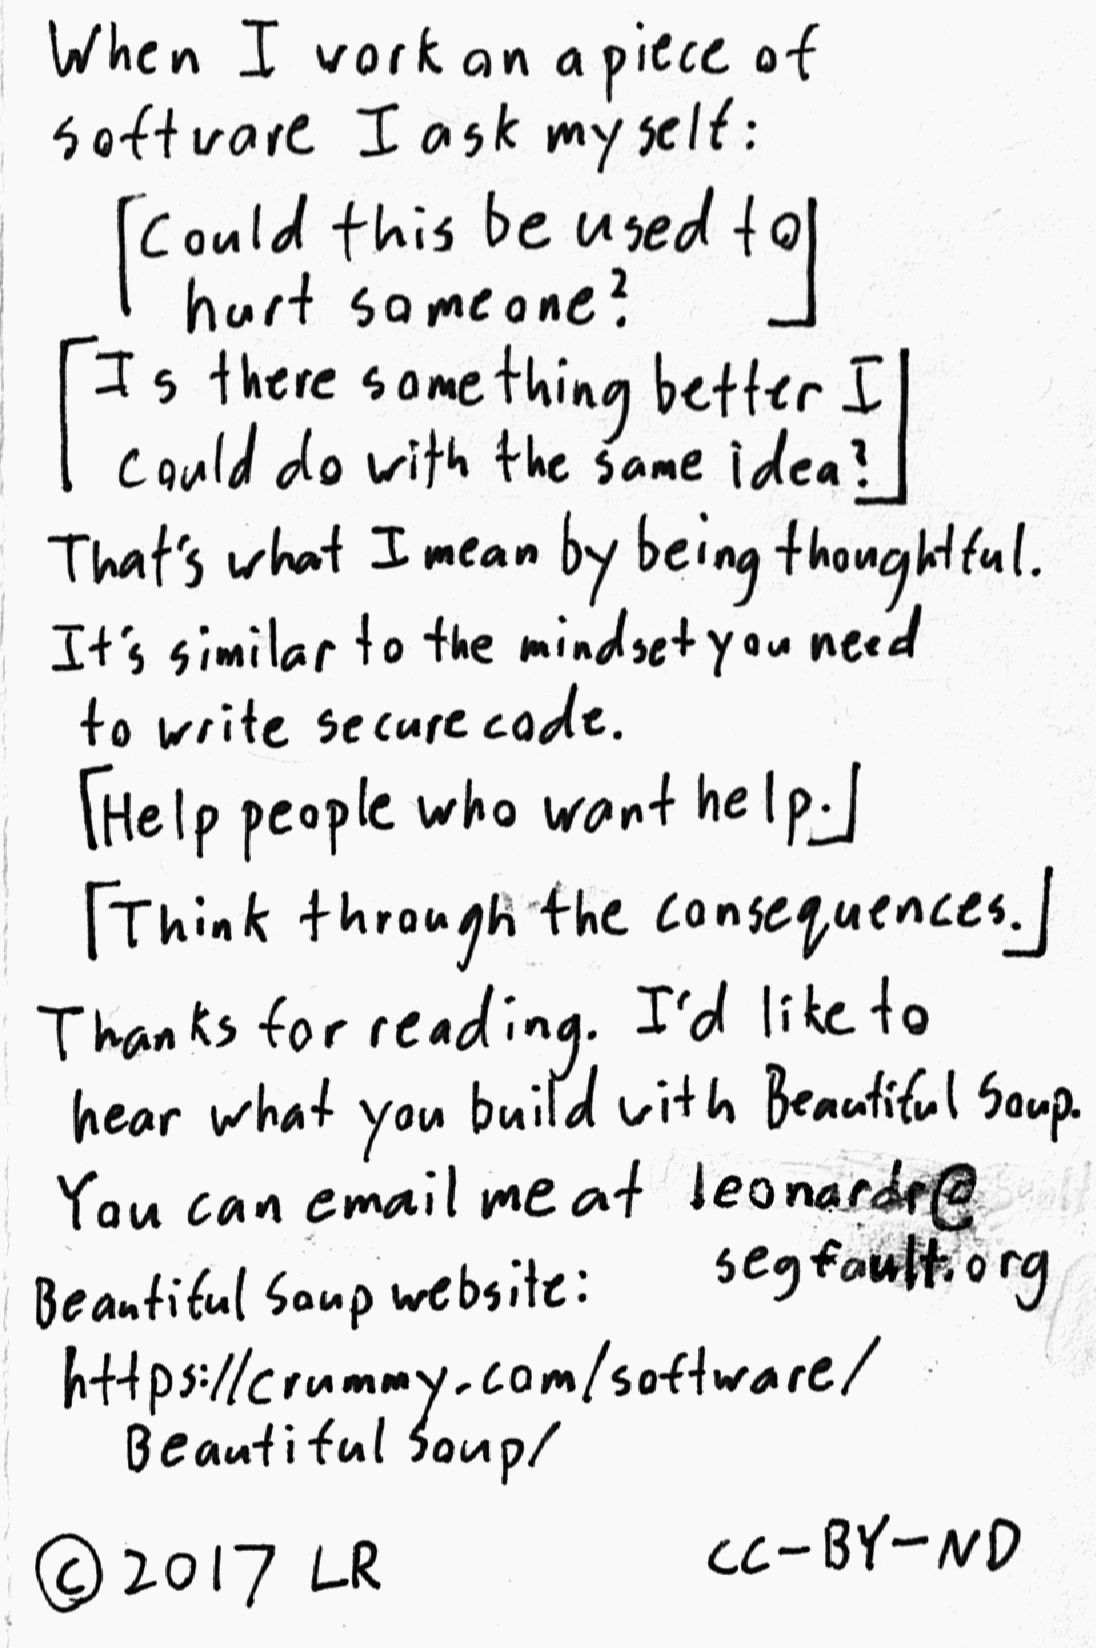 When I work on a piece of
software I ask myself:
⌈Could this be used to
hurt someone?⌋
⌈Is there something better I
could do with the same idea?⌋
That's what I mean by being thoughtful.
It's similar to the mindset you need
to write secure code.
⌈Help people who want help.⌋
⌈Think through the consequences.⌋
Thanks for reading. I'd like to
hear what you build with Beautiful Soup.
You can email me at leonardr@
segfault.org
Beautiful Soup website:
https://crummy.com/software/
Beautiful Soup/
© 2017 LR CC-BY-ND